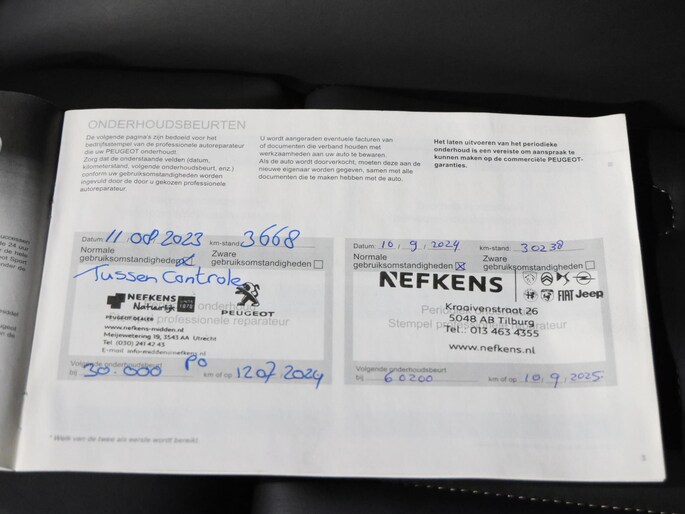 ONDERHOUDSBEURTEN
De volgende pagina's zijn bedoeld voor het
bedrijfsstempel van de professionele autoreparateur
die uw PEUGEOT onderhoudt.
Zorg dat de onderstaande velden (datum,
kilometerstand, volgende onderhoudsbeurt, enz.)
conform uw gebruiksomstandigheden worden
ingevuld door de door u gekozen professionele
autoreparateur.
U wordt aangeraden eventuele facturen van
of documenten die verband houden met
werkzaamheden aan uw auto te bewaren.
Als de auto wordt doorverkocht, moeten deze aan de
nieuwe eigenaar worden gegeven, samen met alle
documenten die te maken hebben met de auto.
Het laten uitvoeren van het periodieke
onderhoud is een vereiste om aanspraak te
kunnen maken op de commerciële PEUGEOT-
garanties.
Datum: 11 08 2023 km-stand: 3668
Normale gebruiksomstandigheden
Zware gebruiksomstandigheden
Tussen Controle
NEFKENS
Natuurlijk
PEUGEOT
PEUGEOT DEALER
professionele reparateur
www.nefkens-midden.nl
Meijewetering 19, 3543 AA Utrecht
Tel (030) 241 42 43
Volgende onderhoudsbeurt
bij 30.000 PO km of op 12 07 2024
Datum: 10, 9, 2024 km-stand: 30238
Normale gebruiksomstandigheden
Zware gebruiksomstandigheden
NEFKENS
FIAT Jeep
Kraaivenstraat 26
5048 AB Tilburg
Tel.: 013 463 4355
www.nefkens.nl
Volgende onderhoudsbeurt
bij 60200 km of op 10, 9, 2025
* Welk van de twee als eerste wordt bereikt.